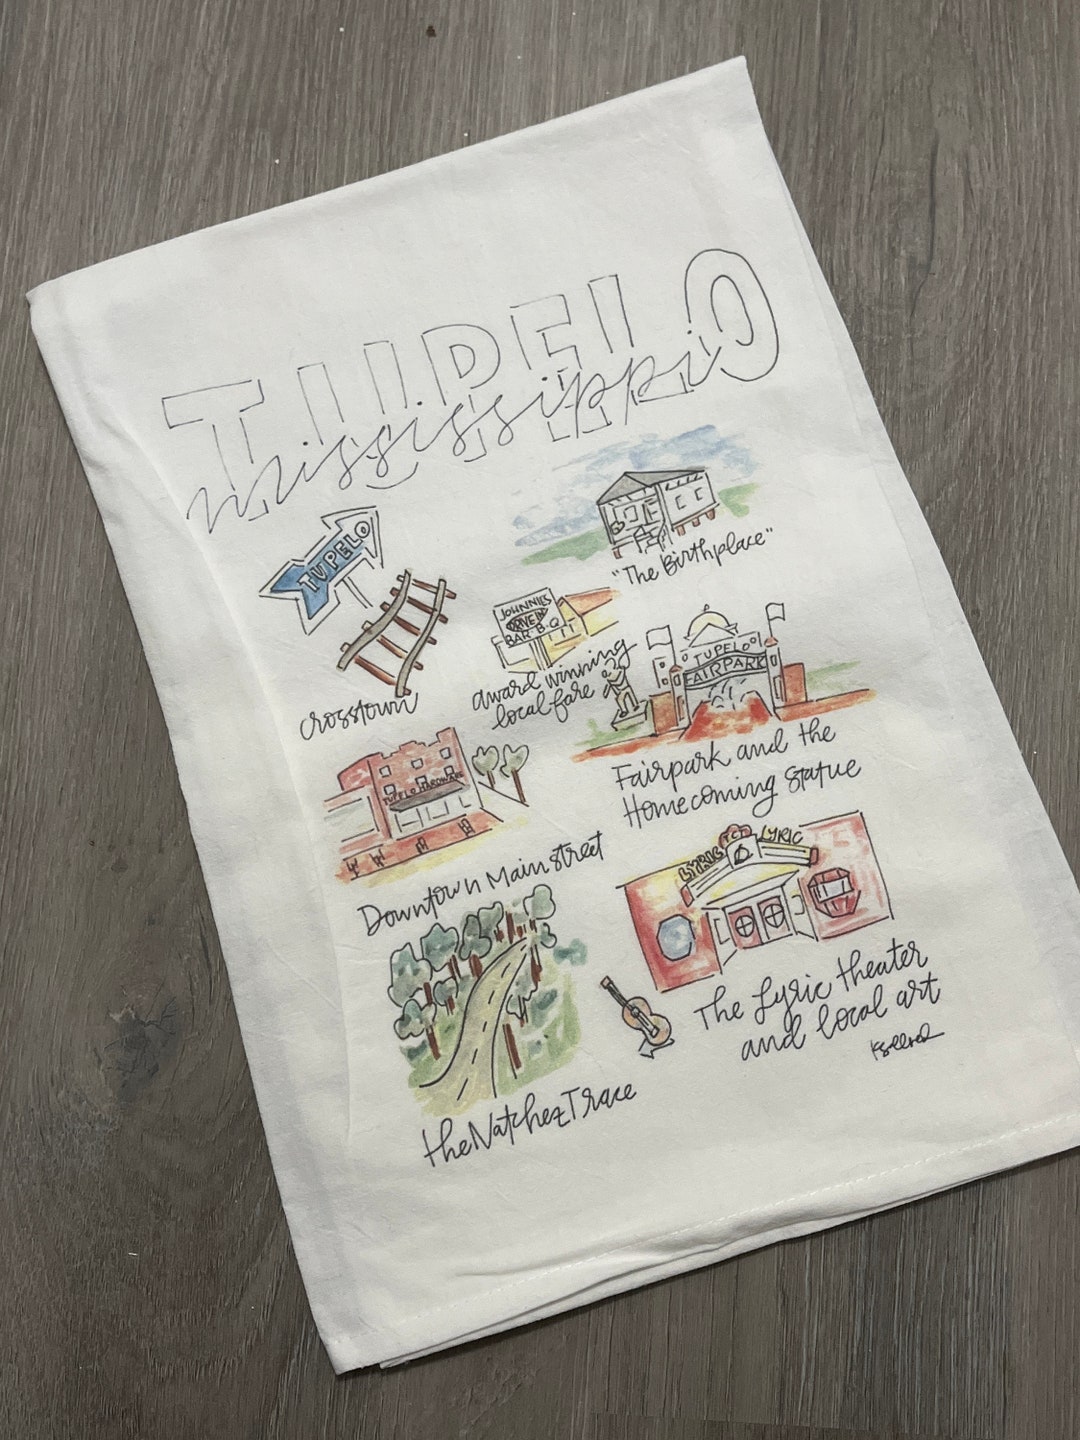 TUPELO
mississippi
TUPELO
crosstown
"The Birthplace"
JOHNNIE'S
DRIVE IN
BAR-B-Q
award winning
local fare
TUPELO
FAIRPARK
Fairpark and the
Homecoming Statue
TUPELO HARDWARE
Downtown Main street
LYRIC
TCT
LYRIC
The Lyric theater
and local art
the Natchez Trace